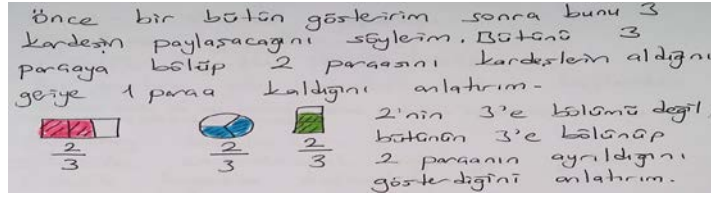 önce bir bütün gösteririm sonra bunu 3
kardeşin paylaşacağını söylerim. Bütünü 3
parçaya bölüp 2 parçasını kardeşlerin aldığını
geriye 1 parça kaldığını anlatırım.
2'nin 3'e bölümü değil
bütünün 3'e bölünüp
2 parçanın ayrıldığını
gösterdiğini anlatırım.
2/3
2/3
2/3